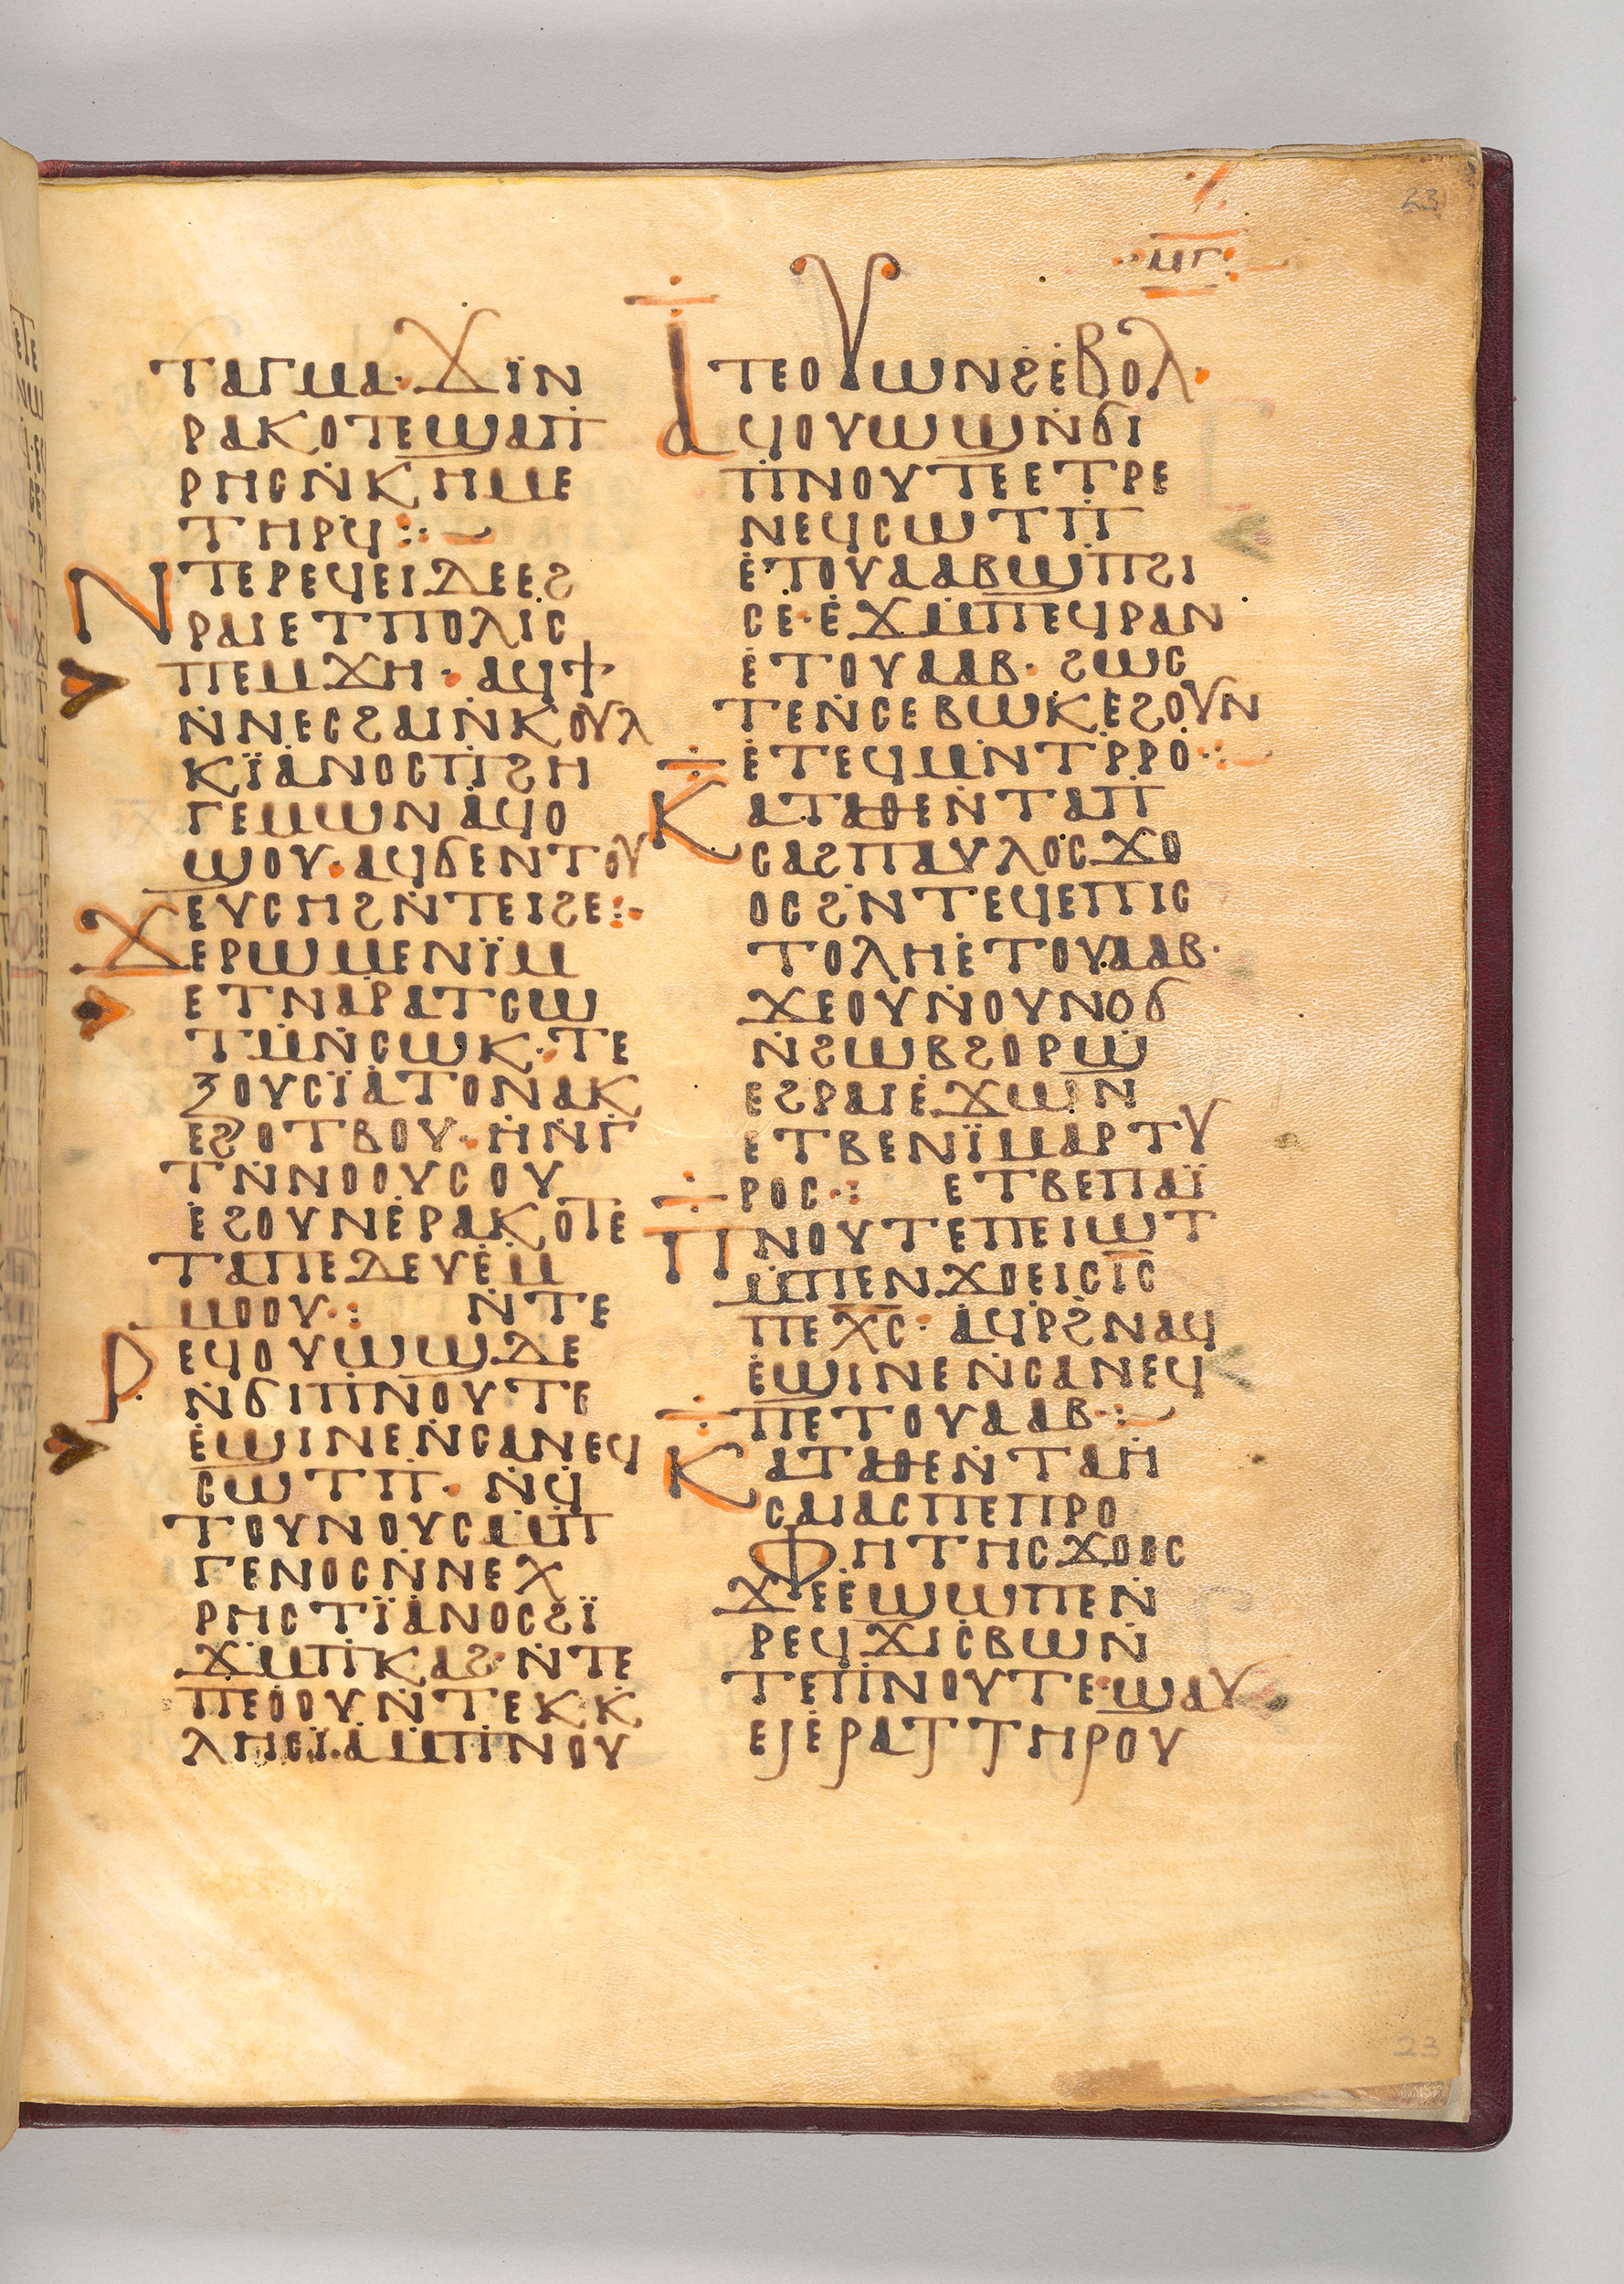 23
ⲙⲅ
ⲧⲁⲅⲙⲁ· ϫⲓ̈ⲛ
ⲣⲁⲕⲟⲧⲉϣⲁⲡ
ⲣⲏⲥⲛ̇ⲕⲏⲙⲉ
ⲧⲏⲣϥ:·
ⲛⲧⲉⲣⲉϥⲉⲓⲇⲉⲉϩ
ⲣⲁⲓⲉⲧⲡⲟⲗⲓⲥ
ⲡⲉⲙϫⲏ· ⲁϥϯ
ⲛ̇ⲛⲉⲥϩⲁⲓⲛ̇ⲕⲟⲩⲗ
ⲕⲓ̈ⲁⲛⲟⲥⲡϩⲏ
ⲅⲉⲙⲱⲛⲁϥⲟ
ϣⲟⲩ· ⲁϥϭⲉⲛⲧⲟⲩ
ⲉⲩⲥⲏϩⲛ̇ⲧⲉⲓϩⲉ:·
ϫⲉⲣⲱⲙⲉⲛⲓ̈ⲙ
ⲉⲧⲛⲁⲣⲁⲧⲥⲱ
ⲧⲙ̇ⲛ̇ⲥⲱⲕ· ⲧⲉ
ⲝⲟⲩⲥⲓ̈ⲁⲧⲟⲛⲁⲕ
ⲉϩⲟⲧⲃⲟⲩ· ⲏ̇ⲛ̇ⲅ
ⲧⲛ̇ⲛⲟⲟⲩⲥⲟⲩ
ⲉ̇ϩⲟⲩⲛⲉ̇ⲣⲁⲕⲟⲧⲉ
ⲧⲁⲡⲉⲇⲉⲩⲉ̇ⲙ
ⲙⲟⲟⲩ·: ⲛ̇ⲧⲉ
ⲣⲉϥⲟⲩⲱϣⲇⲉ
ⲛ̇ϭⲓⲡⲛⲟⲩⲧⲉ
ⲉ̇ϣⲓⲛⲉⲛ̇ⲥⲁⲛⲉϥ
ⲥⲱⲧⲡ· ⲛ̇ϥ
ⲧⲟⲩⲛⲟⲩⲥⲙ̇ⲡ
ⲅⲉⲛⲟⲥⲛ̇ⲛⲉⲭ
ⲣⲏⲥⲧⲓ̈ⲁⲛⲟⲥϩⲓ̈
ϫⲙ̇ⲡⲕⲁϩ· ⲛ̇ⲧⲉ
ⲡⲉⲟⲟⲩⲛ̇ⲧⲉⲕⲕ
ⲗⲏⲥⲓ̈ⲁⲙ̇ⲡⲛⲟⲩ
ⲧⲉⲟⲩⲱⲛϩⲉ̇ⲃⲟⲗ·
ⲁϥⲟⲩⲱϣⲛ̇ϭⲓ
ⲡⲛⲟⲩⲧⲉⲉⲧⲣⲉ
ⲛⲉϥⲥⲱⲧⲡ
ⲉ̇ⲧⲟⲩⲁⲁⲃϣⲡϩⲓ
ⲥⲉ· ⲉ̇ϫⲙ̇ⲡⲉϥⲣⲁⲛ
ⲉ̇ⲧⲟⲩⲁⲁⲃ· ϩⲱⲥ
ⲧⲉⲛ̇ⲥⲉⲃⲱⲕⲉ̇ϩⲟⲩⲛ
ⲉ̇ⲧⲉϥⲙⲛ̇ⲧⲣ̇ⲣⲟ·:
ⲕⲁⲧⲁⲑⲉⲛ̇ⲧⲁⲡ
ⲥⲁϩⲡⲁⲩⲗⲟⲥϫⲟ
ⲟⲥϩⲛ̇ⲧⲉϥⲉⲡⲓⲥ
ⲧⲟⲗⲏⲉ̇ⲧⲟⲩⲁⲁⲃ·
ϫⲉⲟⲩⲛ̇ⲟⲩⲛⲟϭ
ⲛ̇ϩⲱⲃϩⲟⲣϣ
ⲉϩⲣⲁⲓⲉ̇ϫⲱⲛ
ⲉⲧⲃⲉⲛⲓ̈ⲙⲁⲣⲧⲩ
ⲣⲟⲥ·: ⲉⲧⲃⲉⲡⲁⲓ̈
ⲡⲛⲟⲩⲧⲉⲡⲉⲓⲱⲧ
ⲙ̇ⲡⲉⲛϫⲟⲉⲓⲥⲓ̅ⲥ̅
ⲡⲉⲭ̅ⲥ̅· ⲁϥⲣ̇ϩⲛⲁϥ
ⲉ̇ϣⲓⲛⲉⲛ̇ⲥⲁⲛⲉϥ
ⲡⲉⲧⲟⲩⲁⲁⲃ·:
ⲕⲁⲧⲁⲑⲉⲛ̇ⲧⲁⲏ̇
ⲥⲁⲓⲁⲥⲡⲉⲡⲣⲟ
ⲫⲏⲧⲏⲥϫⲟⲟⲥ
ϫⲉⲉ̇ϣⲱⲡⲉⲛ̇
ⲣⲉϥϫⲓⲥⲃⲱⲛ̇
ⲧⲉⲡⲛⲟⲩⲧⲉ· ϣⲁⲩ
ⲉⲓⲉ̇ⲣⲁⲧⲧⲏⲣⲟⲩ
23